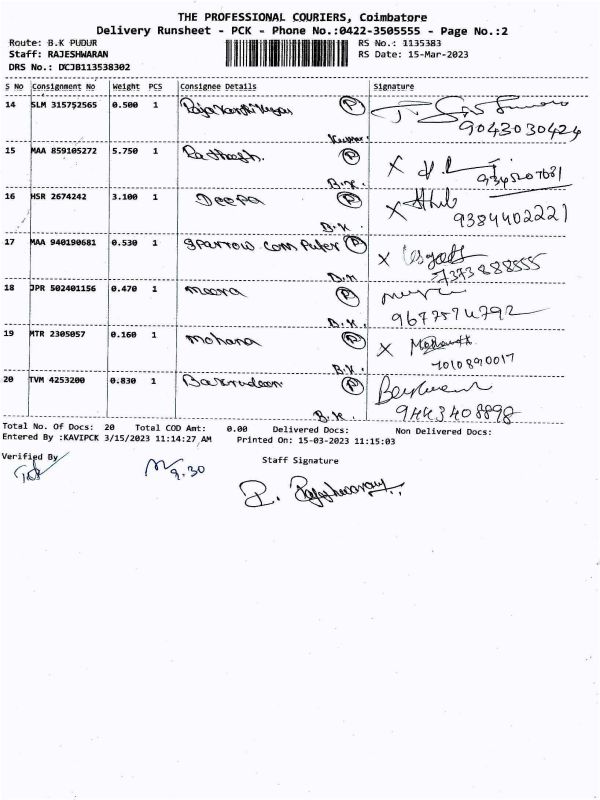 THE PROFESSIONAL COURIERS, Coimbatore
Delivery Runsheet - PCK - Phone No.:0422-3505555 - Page No.:2
Route: B.K PUDUR RS No.: 1135383
Staff: RAJESHWARAN RS Date: 15-Mar-2023
DRS No.: DCJB113538302
S No Consignment No Weight PCS Consignee Details Signature
14 SLM 315752565 0.500 1 P
9043030424
Kumar.
15 MAA 859105272 5.750 1 P X
B.K.
16 HSR 2674242 3.100 1 Deepa P X
B.K 9384402221
17 MAA 940190681 0.530 1 Sparrow Com Puter P X
B.K 7393888555
18 JPR 502401156 0.470 1 meera P
B.K. 9677574792
19 MTR 2305057 0.160 1 mohana P X
B.K. 7010890017
20 TVM 4253200 0.830 1 P
B.K. 9443408898
Total No. Of Docs: 20 Total COD Amt: 0.00 Delivered Docs: Non Delivered Docs:
Entered By :KAVIPCK 3/15/2023 11:14:27 AM Printed On: 15-03-2023 11:15:03
Verified By Staff Signature
9.30